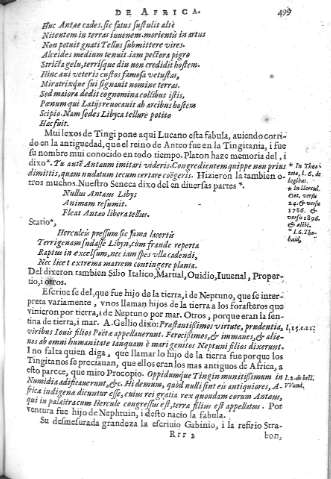 DE AFRICA. 499
Huc Antæe cades. sic fatus sustulit altè
Nitentem in terras iuuenem. morientis in artus
Non potuit gnati Tellus submittere vires.
Alcides medium tenuit iam pectora pigro
Stricta gelu, terrisque diu non credidit hostem.
Hinc æui veteris custos famosa vetustas,
Miratrixque sui signauit nomine terras.
Sed maiora dedit cognomina collibus istis,
Pœnum qui Latijs reuocauit ab arcibus hostem
Scipio. Nam sedes Libyca tellure potito
Hæc fuit.
Mui lexos de Tingi pone aqui Lucano esta fabula, auiendo corri-
do en la antiguedad, que el reino de Anteo fue en la Tingitania. i fue
su nombre mui conocido en todo tiempo. Platon haze memoria del, i
dixo*. Tu autē Antæum imitari videris. Congredientem quippe non prius
dimittis, quam nudatum tecum certare coëgeris. Hizieron la tambien o-
tros muchos. Nuestro Seneca dixo del en diuersas partes*.
Nullus Antæus Libys
Animam resumit.
Fleat Antæo libera tellus.
Statio*,
Herculeis pressum sic fama lacertis
Terrigenam sudasse Libyn, cum fraude reperta
Raptus in excelsum, nec iam spes vlla cadendi,
Nec licet extrema matrem contingere planta.
Del dixeron tambien Silio Italico, Martial, Ouidio, Iuuenal, Proper-
tio, i otros.
Escriue se del, que fue hijo de la tierra, i de Neptuno, que se inter-
preta variamente, vnos llaman hijos de la tierra a los forasteros que
vinieron por tierra, i de Neptuno por mar. Otros, porque eran la sen-
tina de tierra, i mar. A. Gellio dixo: Præstantissimos virtute, prudentia,
viribus Iouis filios Poëtæ appellauerunt. Ferocissimos, & immanes, & alie-
nos ab omni humanitate tanquam è mari genitos Neptuni filios dixerunt.
I no falta quien diga, que llamar lo hijo de la tierra fue porque los
Tingitanos se preciauan, que ellos eran los mas antiguos de Africa, a
esto parece, que miro Procopio. Oppidumque Tingin munitissimum in
Numidia ædificauerunt, &c. Hi demum, quòd nulli sint eis antiquiores,
frica indigenæ dicuntur esse, cuius rei gratia rex quondam eorum Antæus,
qui in palæstra cum Hercule congressus est, terræ filius est appellatus. Por
ventura fue hijo de Nephtuin, i desto nacio la fabula.
Su desmesurada grandeza la escriuio Gabinio, i la refirio Stra-
Rrr 2 bon,